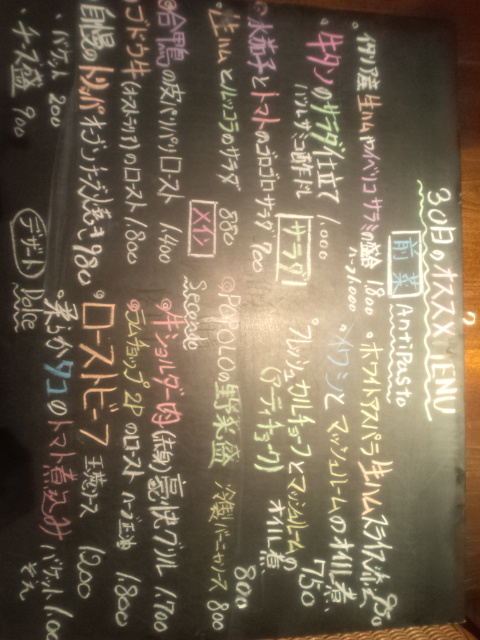 30日のオススメMENU
前菜 AntiPasto
伊産生ハムやムソコサラミの盛合 1,800
ハーフ1,000
ホワイトアスパラ 生ハムスライス添え
イワシとマッシュルームのオイル煮 750
フレッシュカルチョーフとマッシュルームのオイル煮
(アーティチョーク) 800
サラダ
牛タンのサラダ仕立て 1,000
バルサミコ酢ドレ
水茄子とトマトのゴロゴロサラダ 900
生ハムとルッコラのサラダ 880
POPOLOの野菜盛 冷製バーニャソース 800
メイン Secondo
合鴨の皮パリパリロスト 1,400
ゴドウ牛(オーストラリア)のロースト 1,800
自慢のトリッパ オーブンチーズ焼き 980
牛ショルダー肉(赤身)豪快グリル 1,700
ラムチョップ 2Pのロースト ハーブ正油 1,800
ローストビーフ 玉葱ソース 1,200
柔らかタコのトマト煮込み バケット
バケット 200
チーズ盛 900
デザート Dolce